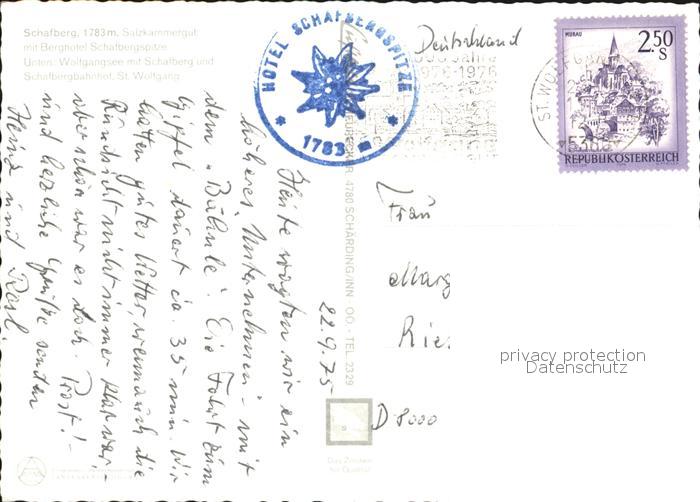 Schafberg, 1783 m, Salzkammergut
mit Berghotel Schafbergspitze
Unten: Wolfgangsee mit Schafberg und
Schafbergbahnhof, St. Wolfgang
HOTEL SCHAFBERGSPITZE
* 1783 m *
Deutschland
1976-1976
ST. WOLFG
5360
MURAU
2.50
S
REPUBLIK ÖSTERREICH
22.9.75
Heute wagten wir ein
höheres Unternehmen - mit
dem "Bähnle". Die Fahrt zum
Gipfel dauert ca. 35 min. Wir
hatten gutes Wetter, wennauch die
Rundsicht nicht immer klar war -
aber schön war es doch. Prost! -
und herzliche Grüße senden
Heinz und Rosl
4780 SCHÄRDING/INN OÖ. TEL 2329
Frau
Marg
Ries
D 8000
Das Zeichen
für Qualität
privacy protection
Datenschutz